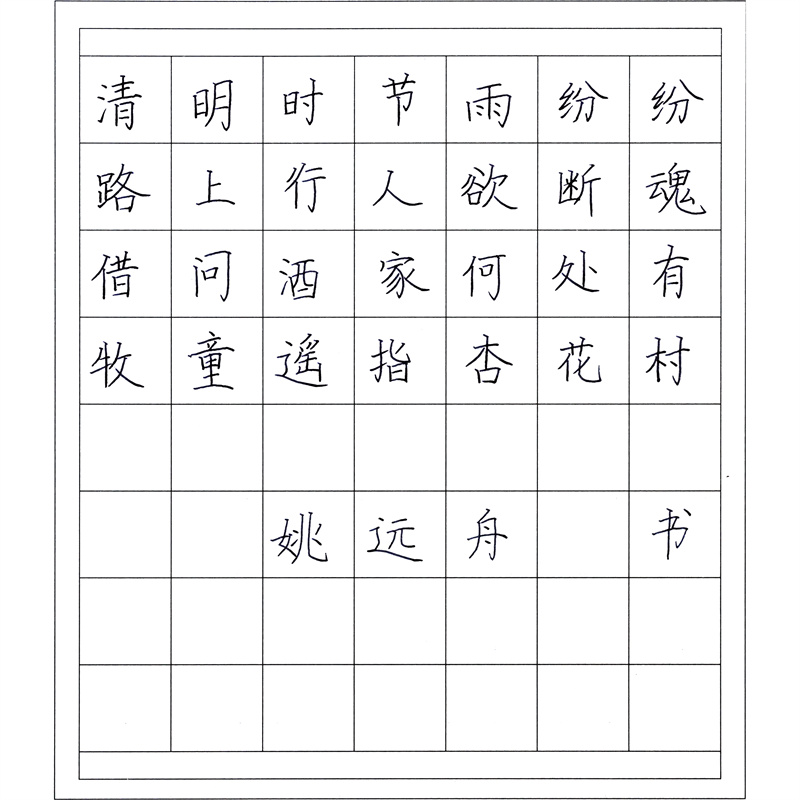 清明时节雨纷纷
路上行人欲断魂
借问酒家何处有
牧童遥指杏花村
姚远舟 书